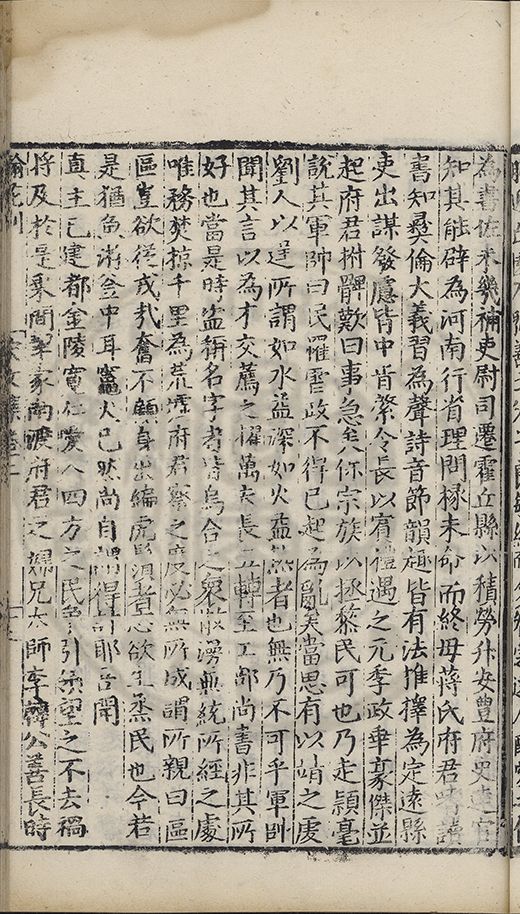 為書佐未幾補吏尉司遷霍丘縣以積勞升安豊府史達官
知其能辟為河南行省理問掾未命而終母蔣氏府君嗜讀
書知彝倫大義習為聲詩音節韻趣皆有法推擇為定遠縣
吏出謀發慮皆中肯綮令長以賓禮遇之元季政乖豪傑並
起府君拊髀歎曰事急矣保宗族以拯黎民可也乃走潁亳
說其軍帥曰民罹虐政不得已起為亂矣當思有以靖之虔
劉人以逞所謂如水益深如火益熱者也無乃不可乎軍帥
聞其言以為才交薦之擢萬夫長五轉至工部尚書非其所
好也當是時盜竊名字者皆烏合之衆散漫無統所經之處
唯務焚掠千里為荒墟府君察之度必無所成謂所親曰區
區豈欲從戎哉奮不顧身出編虎鬚者志欲生烝民也今若
是猶魚游釜中耳竈火已然尚自謂得計耶言聞
真主已建都金陵寬仁愛人四方之民爭引領望之不去禍
將及於是乘間挈家南渡府君之 兄太師李韓公善長時